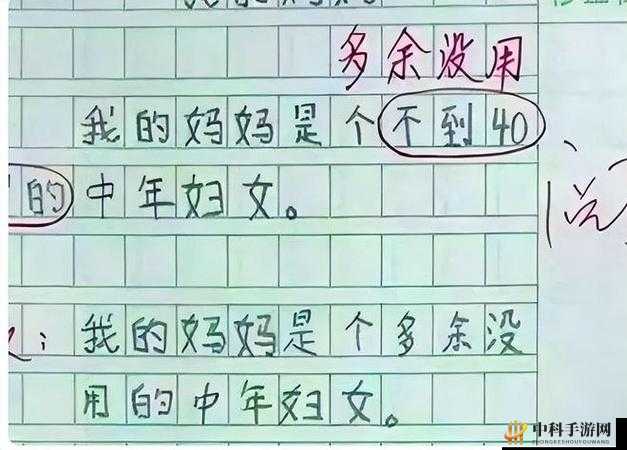 多余没用
我的妈妈是个不到40
的中年妇女。
我的妈妈是个多余没
用的中年妇女。
中科手游网
ZHONGKESHOUYOUWANG